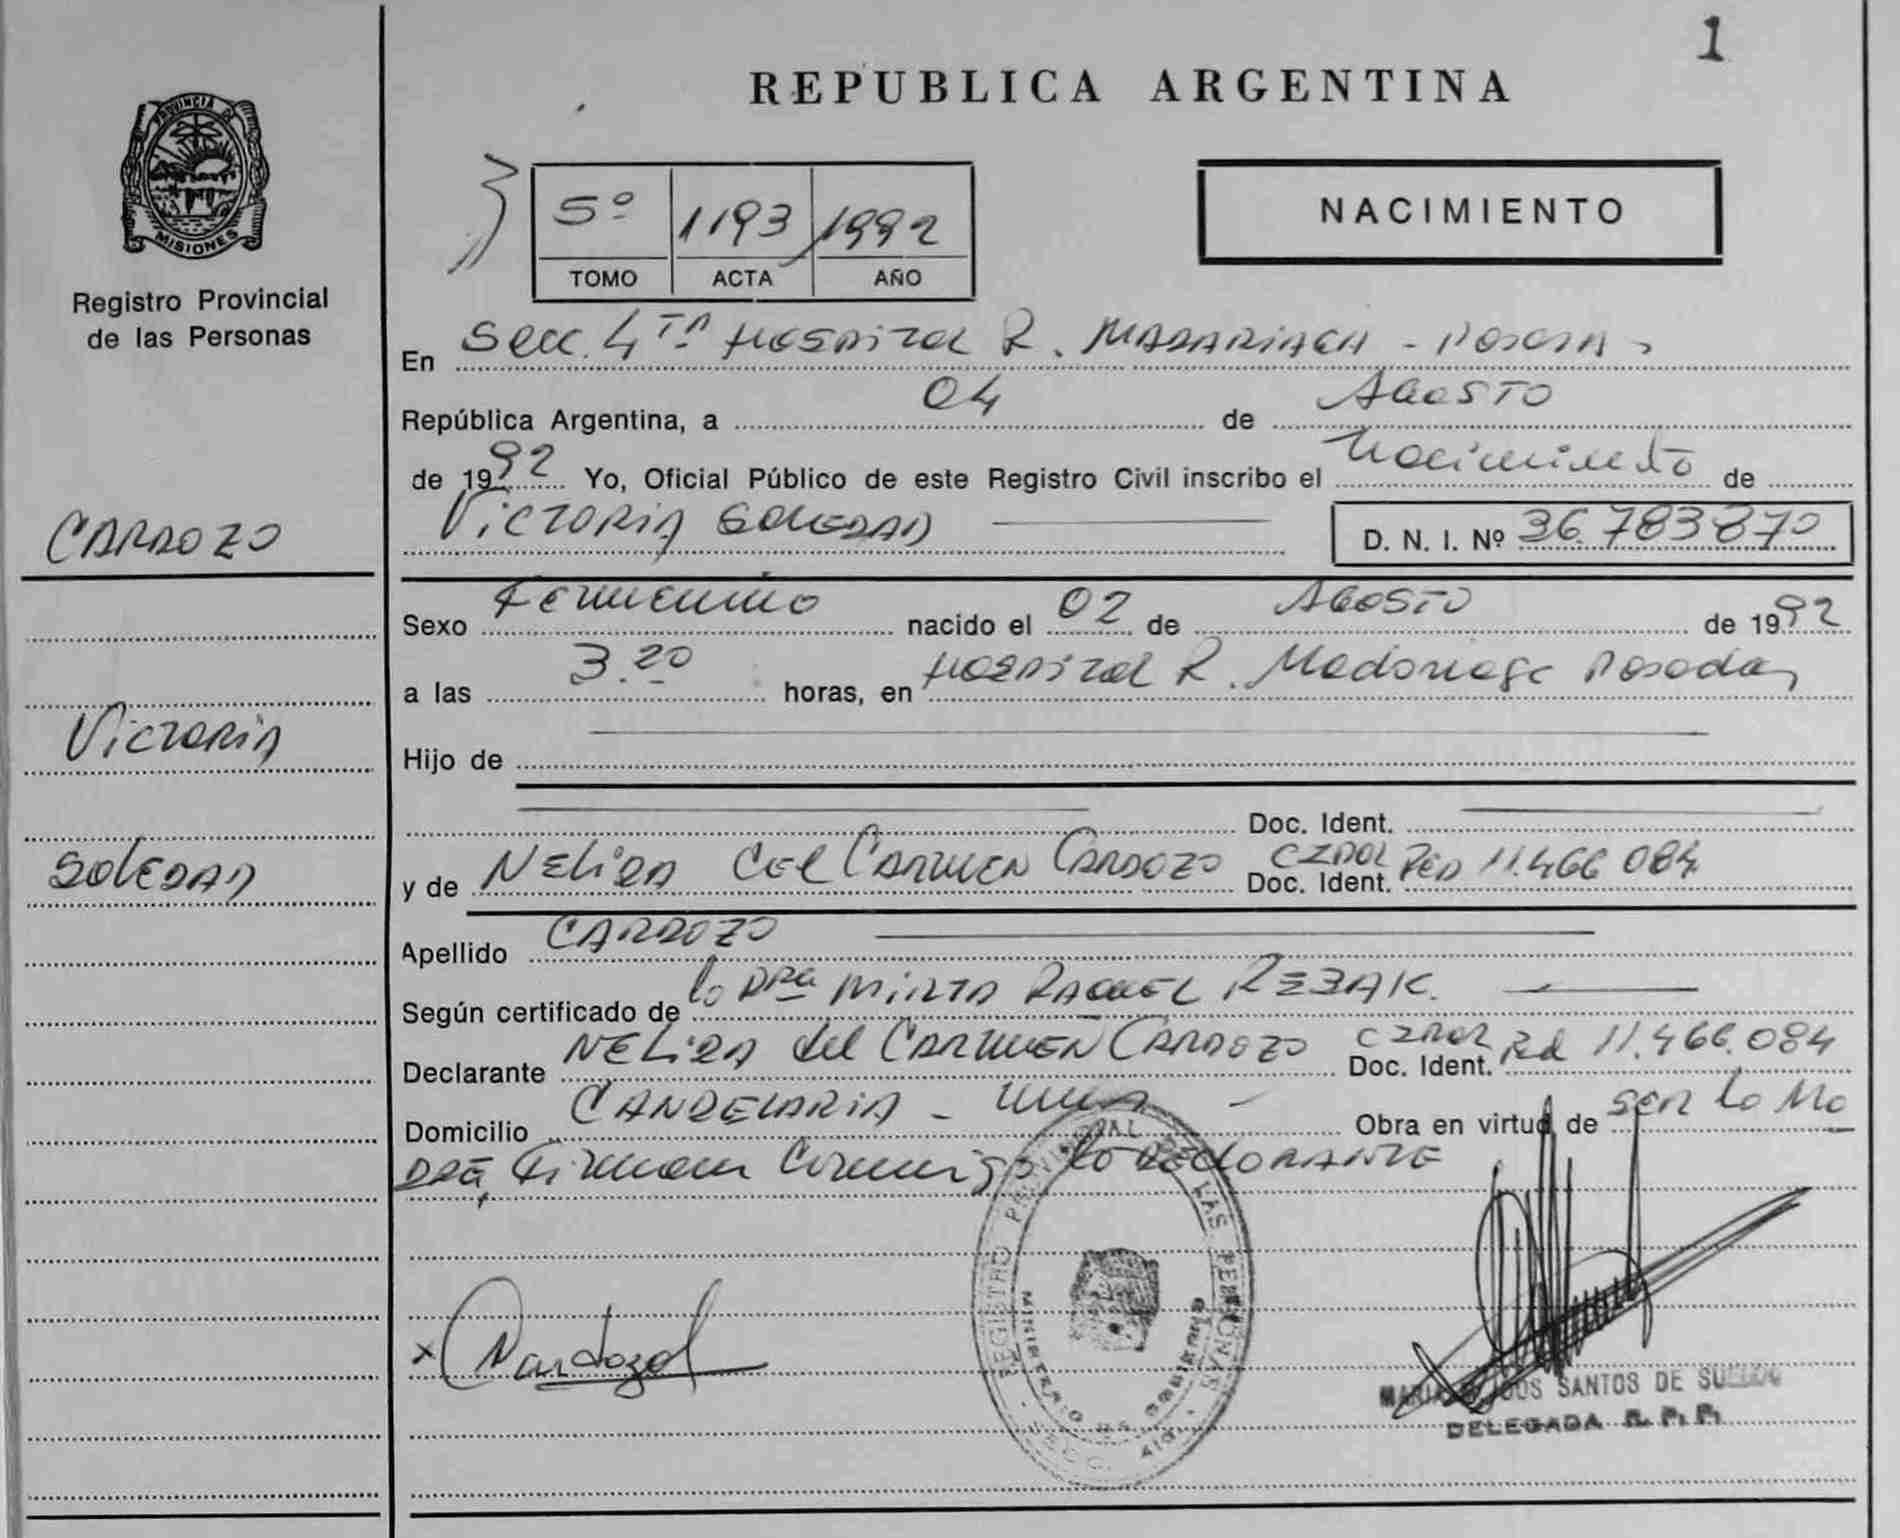 1
REPUBLICA ARGENTINA
PROVINCIA DE
MISIONES
Registro Provincial
de las Personas
5º 1193 1992
TOMO ACTA AÑO
NACIMIENTO
En Secc. 4TA Hospital R. MADARIAGA - Posadas
República Argentina, a 04 de Agosto
de 1992 Yo, Oficial Público de este Registro Civil inscribo el Nacimiento de
CARDOZO
VICTORIA SOLEDAD
D. N. I. Nº 36.783870
Sexo Femenino nacido el 02 de Agosto de 1992
a las 3.20 horas, en Hospital R. Madariaga Posadas
Victoria
Hijo de
Doc. Ident.
SOLEDAD
y de NELIDA del CARMEN CARDOZO Doc. Ident. 11.466 084
Apellido CARDOZO
Según certificado de la Dra MIRTA RAQUEL REZAK.
Declarante NELIDA del CARMEN CARDOZO Doc. Ident. 11.466.084
Domicilio CANDELARIA - Obra en virtud de ser la Ma
dre, Firman Conmigo la DECLARANTE
REGISTRO PROVINCIAL DE LAS PERSONAS
MINISTERIO DE GOBIERNO
x Cardozo
SANTOS DE
DELEGADA R. P. P.